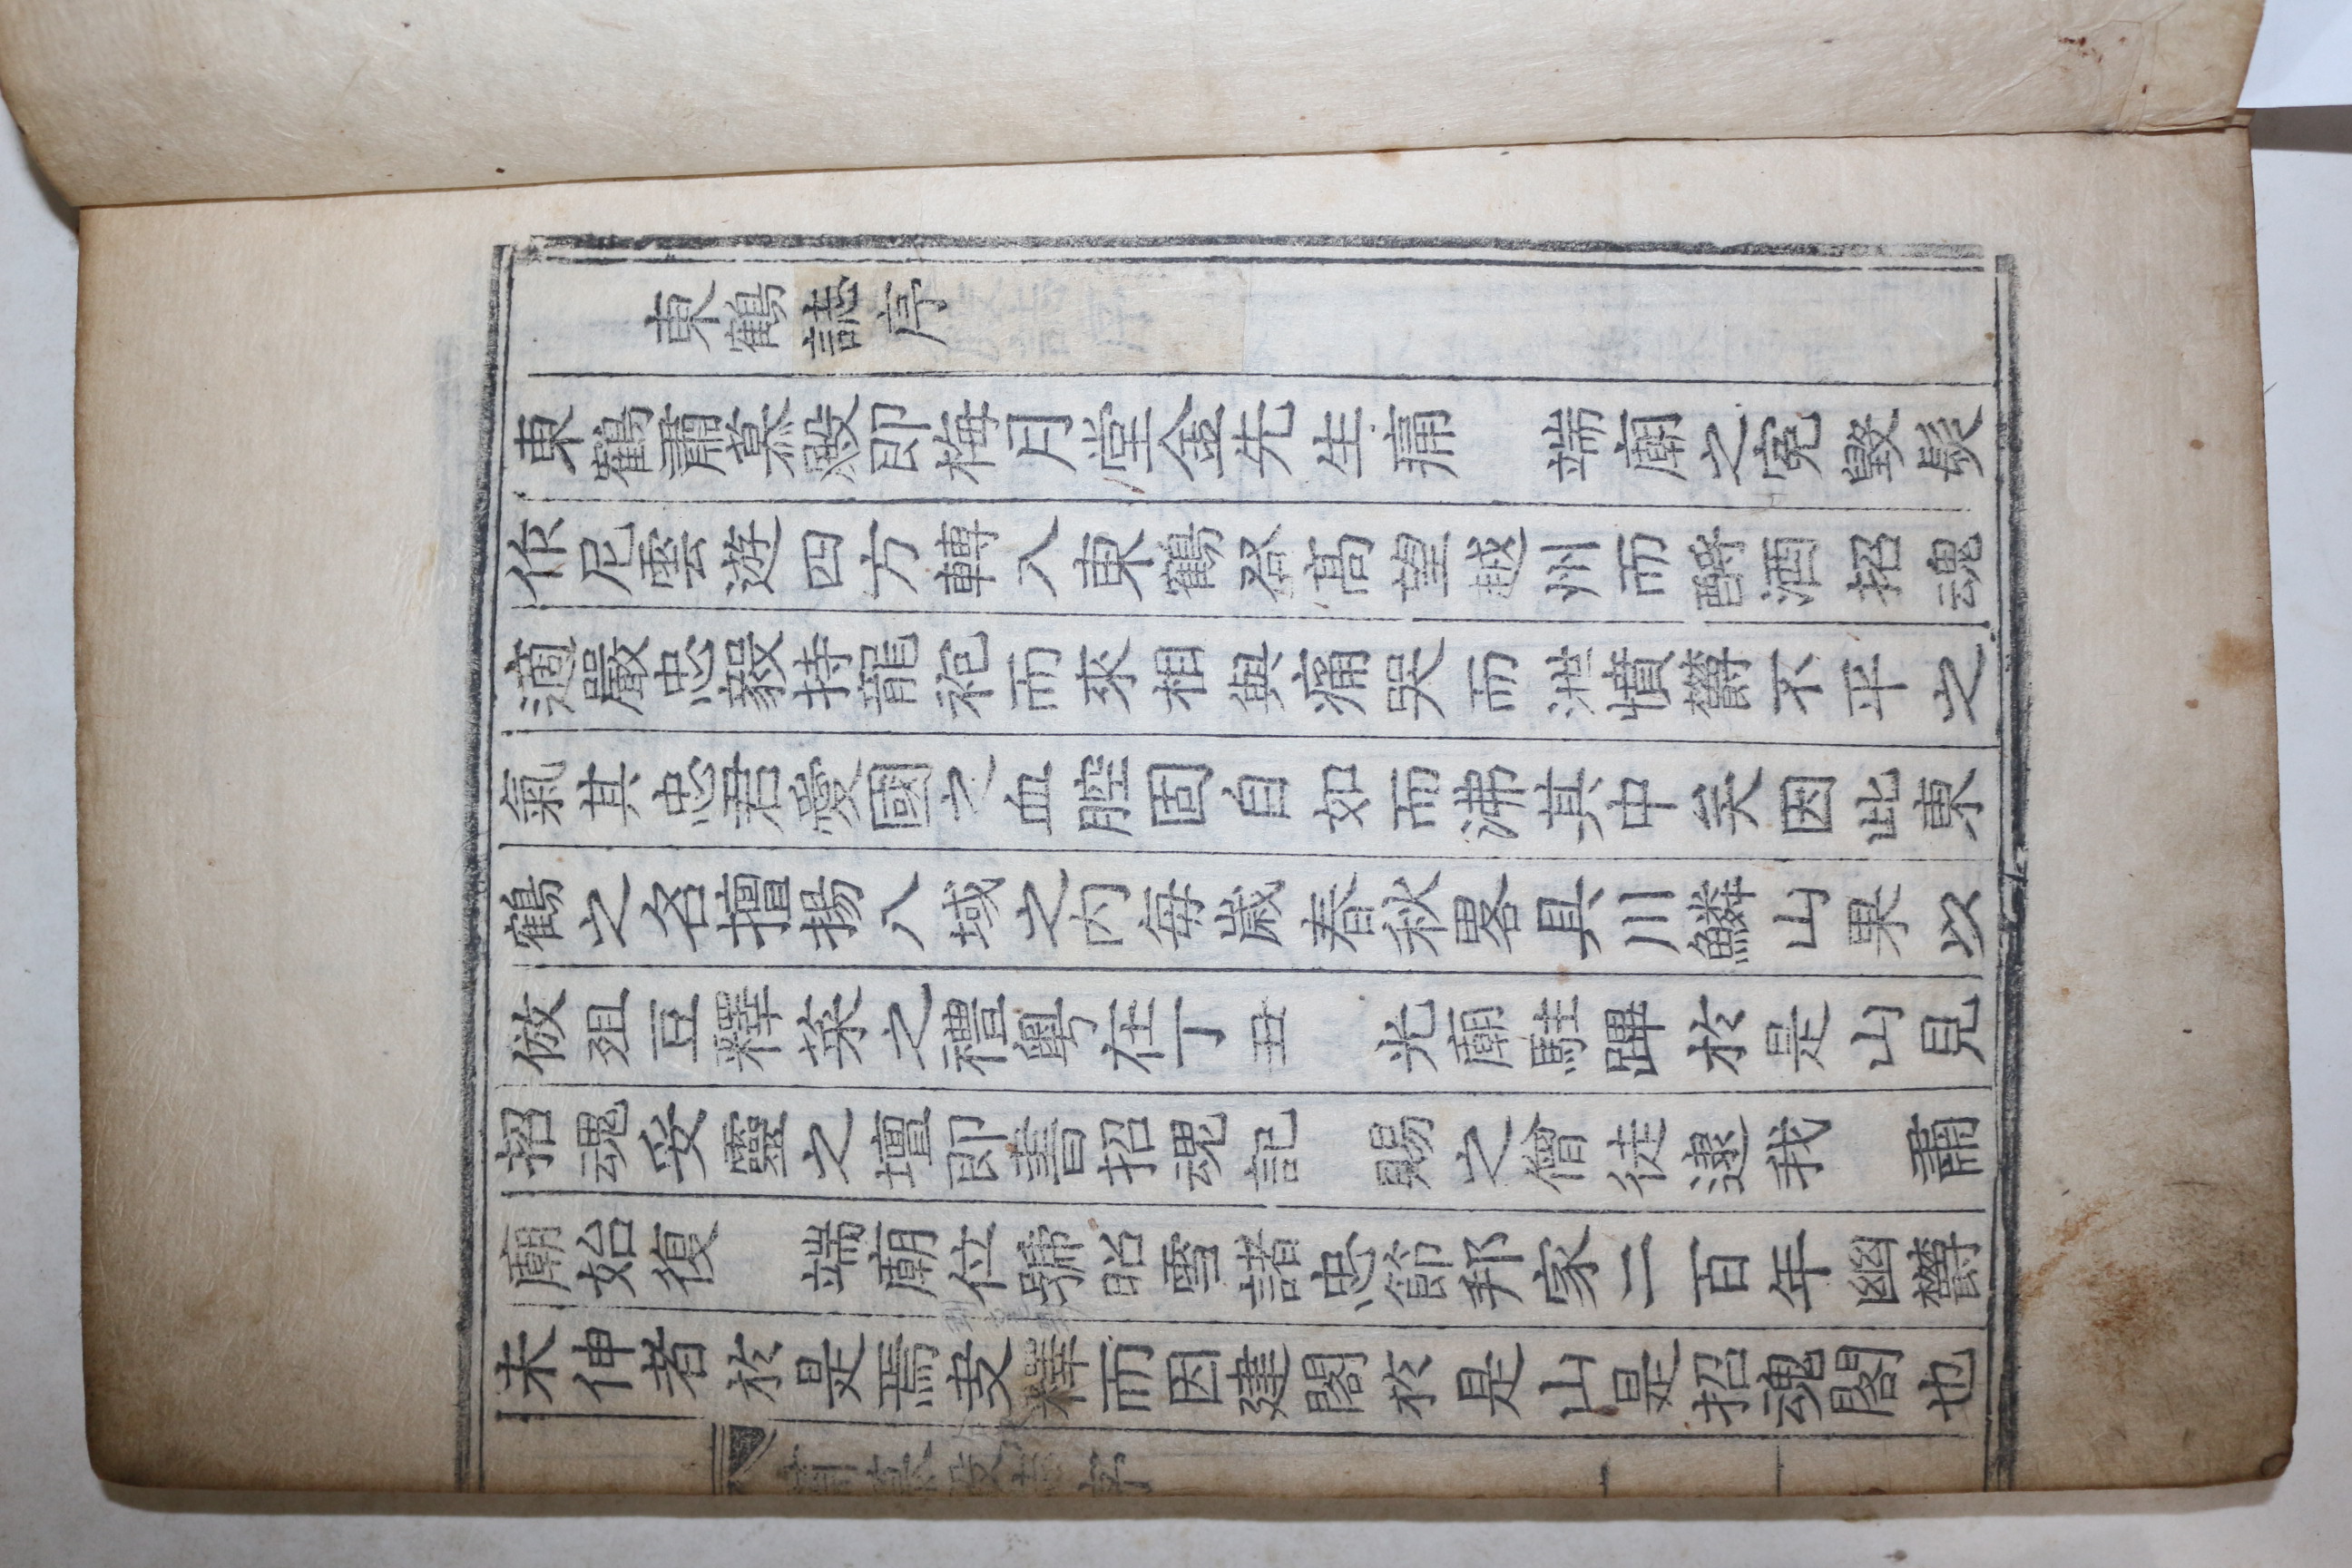 東鶴誌序
東鶴肅慕殿即梅月堂金先生痛 端廟之寃毀髮
作尼雲遊四方轉入東鶴登高望越州而酹酒招魂
適嚴忠毅持龍袍而來相與痛哭而泄憤欝不平之
氣其忠君愛國之血腔固自如而沸其中矣因此東
鶴之名擅揚八域之內每歲春秋畧具川鱗山果以
倣俎豆釋菜之禮粤在丁丑 光廟駐蹕於是山見
招魂妥靈之壇即書招魂記 賜之僧徒逮我 肅
廟始復 端廟位號昭雪諸忠節邦家二百年幽欝
未伸者於是焉叓釋而因建閣於是山是招魂閣也
肅慕殿誌序